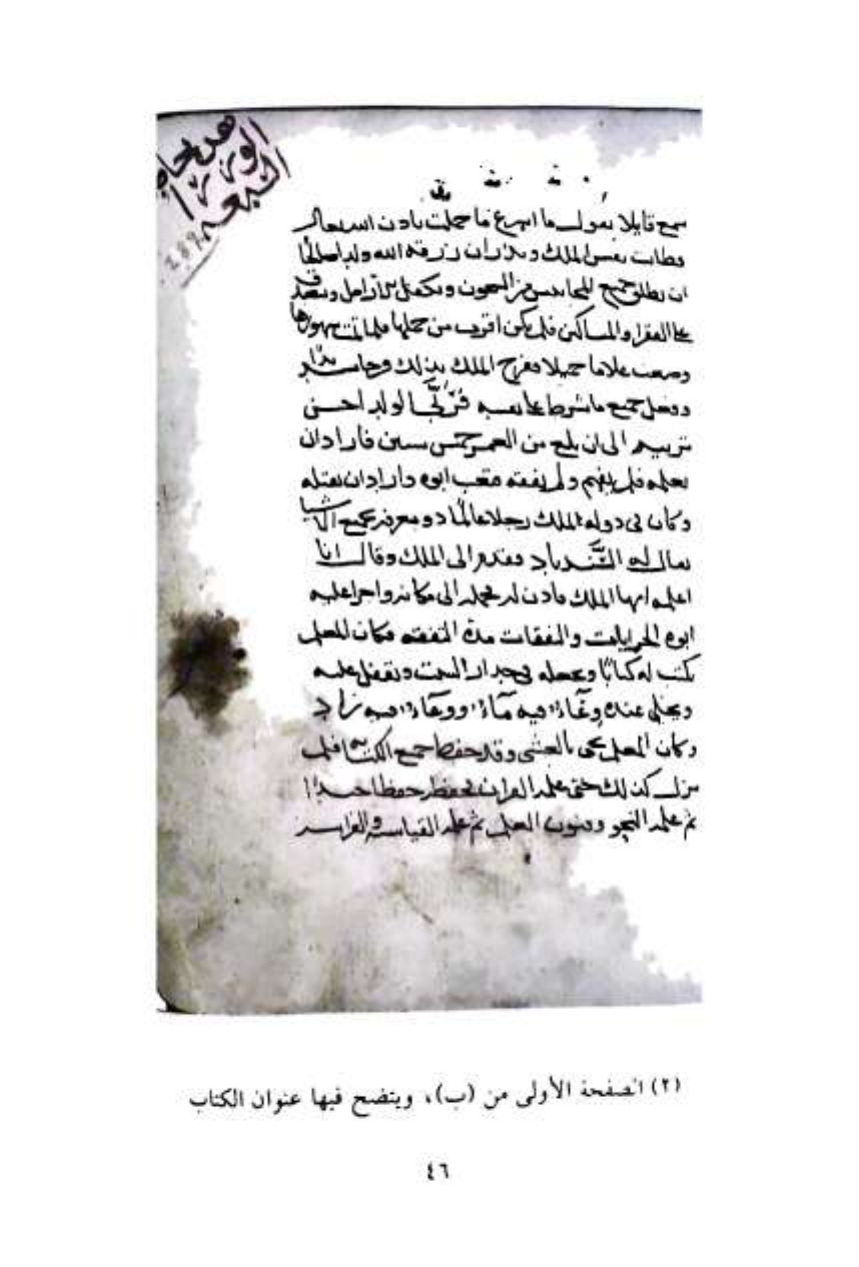 الوزرا
السبعه
سمع قايلا يقول ما اسرع ما حملت باذن الله تعالى
وطابت نفس الملك ونذر ان رزقه الله ولدا صالحا
ان يطلق جميع المحابيس من السجون ويتكفل بالارامل ويتصدق
على الفقرا والمساكين فلم يكن اقرب من حملها فلما تمت شهورها
وضعت غلاما جميلا ففرح الملك بذلك
وفعل جميع ما شرط على نفسه الولد احسن
تربيه الى ان بلغ من العمر خمس سنين فاراد ان
يعلمه فلم يفهم ولم يفقه فتعب ابوه واراد ان يقتله
وكان فى دوله الملك رجلا عالما ذو معرفه بجميع الاشيا
يقال له السندباد فتقدم الى الملك وقال انا
اعلمه ايها الملك فاذن له فحمله الى مكانه واجرا عليه
ابوه الجرايات والنفقات فكان المعلم
يكتب له كتابا ويجعله فى جدار البيت ويقفل عليه
ويخلى عنده وعاء فيه ماء ووعاء فيه زاد
وكان المعلم يجى بالعشى وقد حفظ جميع الكتابه فلم
يزل كذلك حتى علمه القران فحفظه حفظا جيدا
ثم علمه النحو وفنون العلم ثم علمه القياسه والفراسه
(٢) الصفحة الأولى من (ب)، ويتضح فيها عنوان الكتاب
٤٦